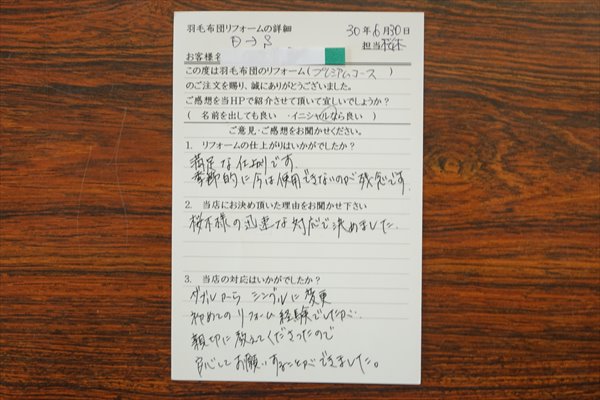 羽毛布団リフォームの詳細 30年6月30日
D→S 担当 桜木
お客様名
この度は羽毛布団のリフォーム(プレミアムコース)
のご注文を賜り、誠にありがとうございました。
ご感想を当HPで紹介させて頂いて宜しいでしょうか?
( 名前を出しても良い ・イニシャルなら良い )
ご意見・ご感想をお聞かせください。
1. リフォームの仕上がりはいかがでしたか?
満足な仕上がりです。
季節的に今は使用できないのが残念です。
2. 当店にお決め頂いた理由をお聞かせ下さい
桜木様の迅速な対応で決めました。
3. 当店の対応はいかがでしたか?
ダブルから シングルに変更
初めてのリフォーム経験でしたが
親切に教えてくださったので
安心してお願いすることができました。